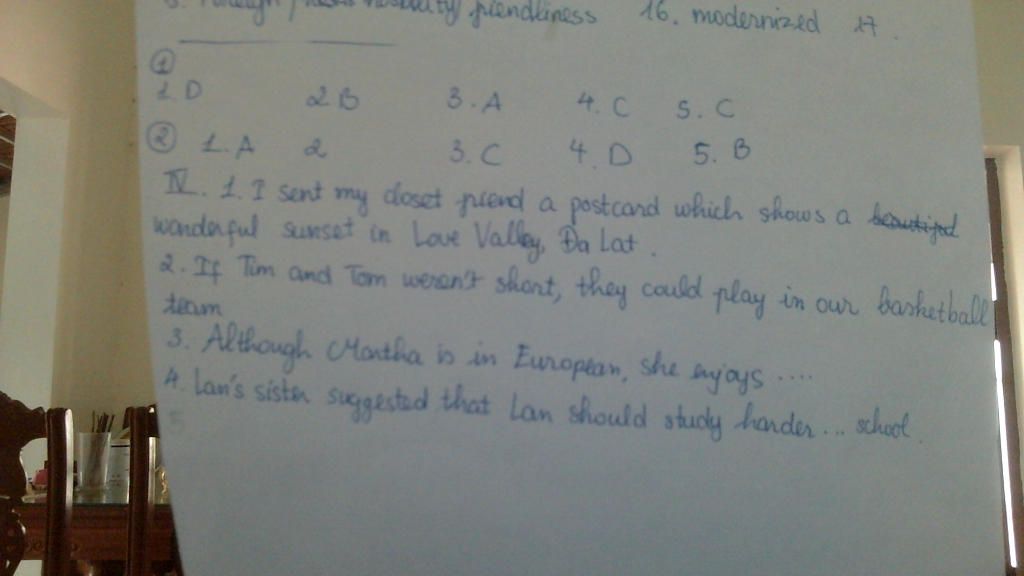 friendliness 16. modernized 17.
①
1. D 2 B 3. A 4. C 5. C
② 1. A 2 3. C 4. D 5. B
IV. 1. I sent my closet friend a postcard which shows a beautiful
wonderful sunset in Love Valley, Đa Lat.
2. If Tim and Tom weren't short, they could play in our basketball
team
3. Although Martha is in European, she enjoys ....
4. Lan's sister suggested that Lan should study harder... school.
5